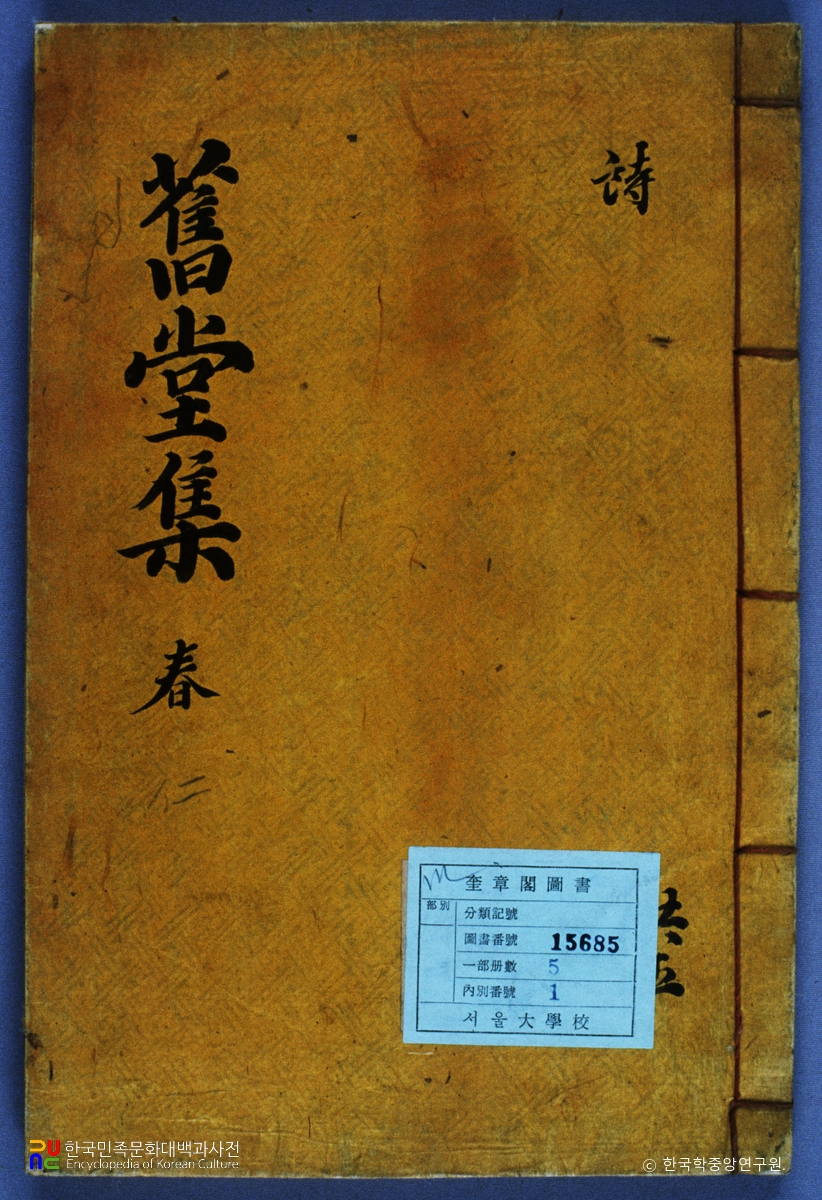 詩
舊堂集 春
仁
共五
奎章閣圖書
部別
分類記號
圖書番號 15685
一部册數 5
內別番號 1
서울大學校
한국민족문화대백과사전
Encyclopedia of Korean Culture
© 한국학중앙연구원